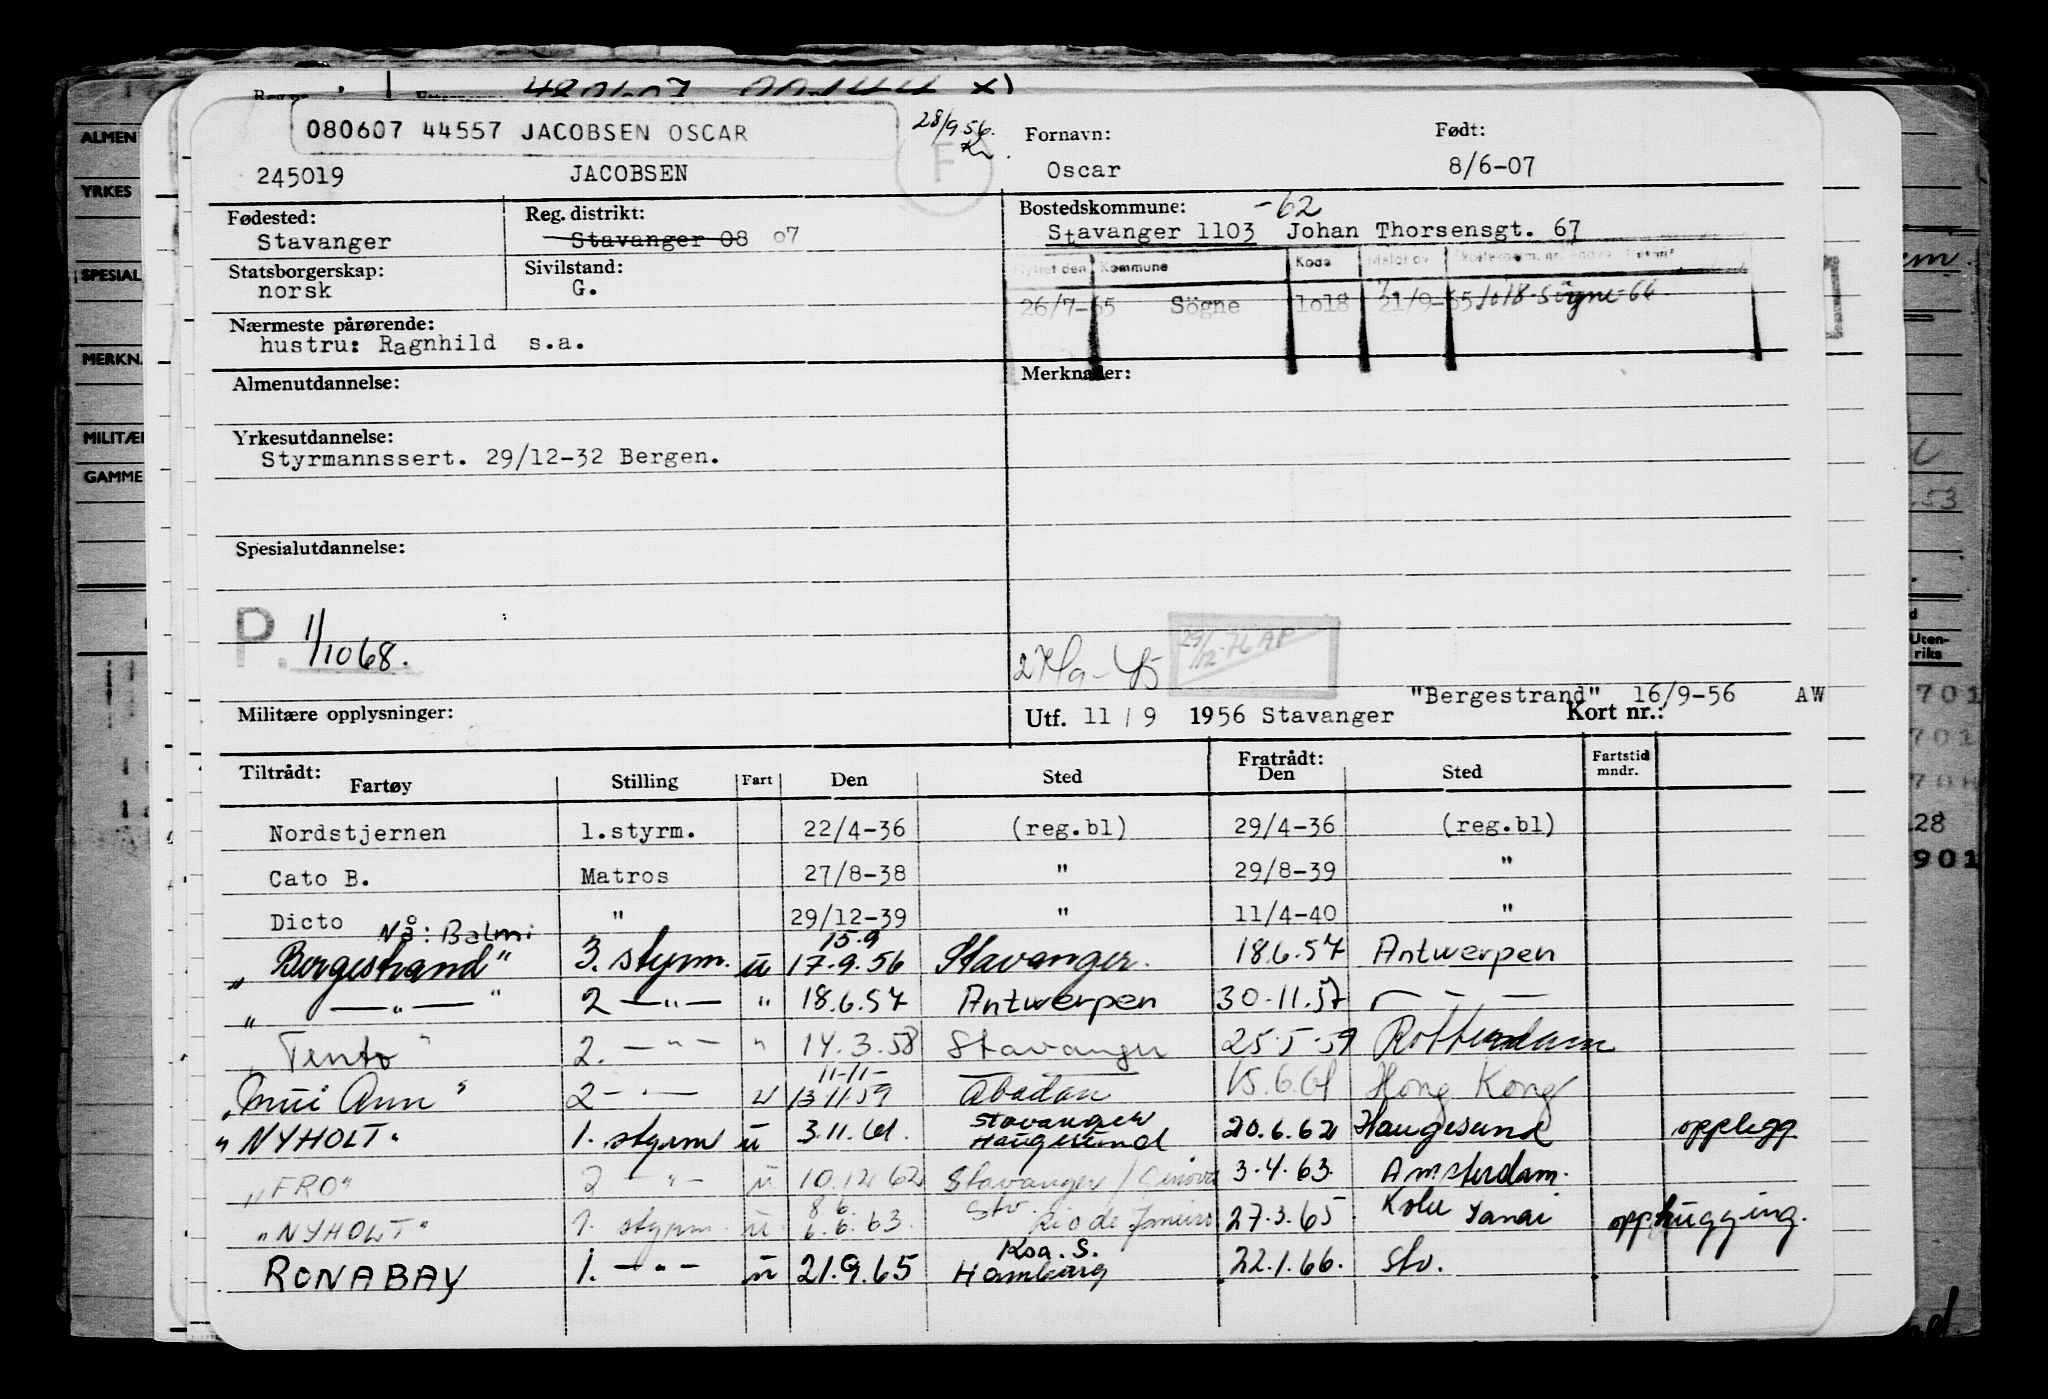 080607 44557 JACOBSEN OSCAR
28/9 56.
F
Fornavn:
Født:
245019 JACOBSEN Oscar 8/6-07
Fødested:
Stavanger
Reg. distrikt:
Stavanger 08 07
Bostedskommune: -62
Stavanger 1103 Johan Thorsensgt. 67
Statsborgerskap:
norsk
Sivilstand:
G.
Flyttet den Kommune Kode
26/7-65 Sögne 1018 21/9-65 1018 Sögne 66
Nærmeste pårørende:
hustru: Ragnhild s.a.
Almenutdannelse:
Merknader:
Yrkesutdannelse:
Styrmannssert. 29/12-32 Bergen.
Spesialutdannelse:
P. 1/10 68.
29/12-76 AP
"Bergestrand" 16/9-56 AW
Militære opplysninger:
Utf. 11/9 1956 Stavanger Kort nr.:
Tiltrådt: Fartøy Stilling Fart Den Sted Fratrådt: Den Sted Fartstid mndr.
Nordstjernen 1.styrm. 22/4-36 (reg.bl) 29/4-36 (reg.bl)
Cato B. Matros 27/8-38 " 29/8-39 "
Dicto " 29/12-39 " 11/4-40 "
Nå: Balmi 15.9
"Bergestrand" 3. styrm. u 17.9.56 Stavanger. 18.6.57 Antwerpen
" — " — " 2 — " — " 18.6.57 Antwerpen 30.11.57 — — —
"Tento" 2. — " — " 14.3.58 Stavanger 25.5.59 Rotterdam
11-11-
"Mui Ann" 2 — " — u 13.11.59 Abadan 15.6.61 Hong Kong
Stavanger
"NYHOLT" 1. styrm u 3.11.61. Haugesund 20.6.62 Haugesund opplegg
"FRO" 2 — " — u 10.12.62 Stavanger / Genova 3.4.63. Amsterdam.
8 6. Stv.
"NYHOLT" 1. styrm. u 6.6.63. Rio de Janeiro 27.3.65 opphugging.
Ksa. S.
RONABAY 1. — " — u 21.9.65 Hamburg 22.1.66. Stv.
ALMEN
YRKES
SPESIAL
MERKN
MILITÆ
GAMME
Uten-
riks
701
701
28
901